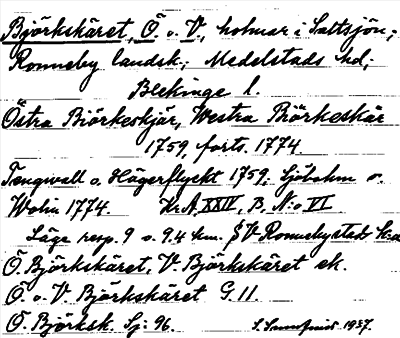 Björkskäret, Ö. o. V., holmar i Saltsjön;
Ronneby landsk.; Medelstads hd;
Blekinge l.
Östra Biörkeskjär, Westra Biörkeskär
1759, forts. 1774
Tengwall o. Hägerflyckt 1759. Sjöholm o.
Wolin 1774. Kr.A. XXIV, B, N:o VI
Läge resp. 9 o. 9.4 km. SV Ronnebystads K:a
Ö. Björkskäret, V. Björkskäret ek.
Ö. o. V. Björkskäret G. 11.
Ö. Björksk. Sj: 96.
1937.